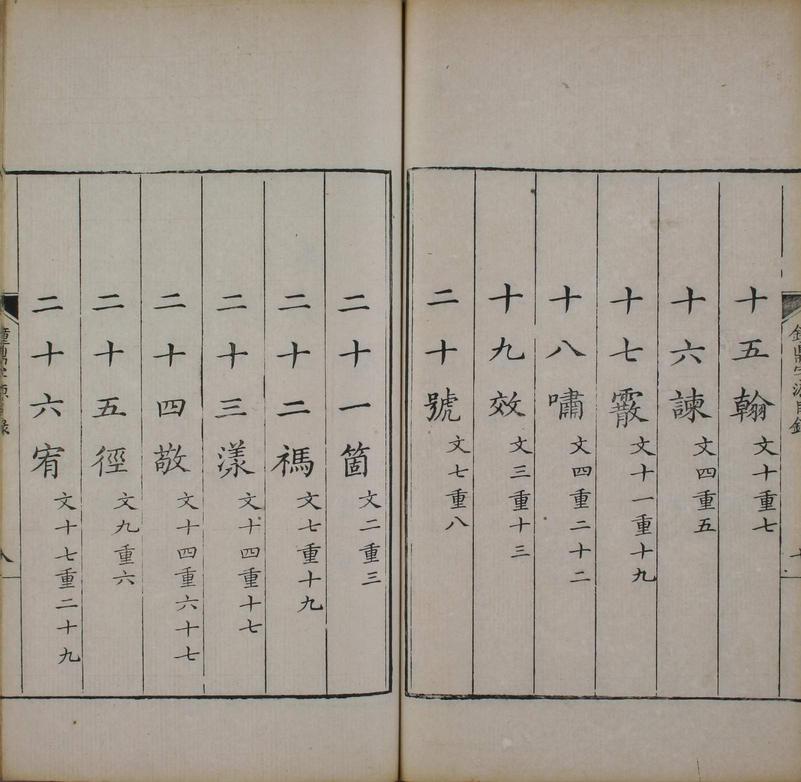 十五翰文十重七
十六諫文四重五
十七霰文十一重十九
十八嘯文四重二十二
十九效文三重十三
二十號文七重八
二十一箇文二重三
二十二禡文七重十九
二十三漾文十四重十七
二十四敬文十四重六十七
二十五徑文九重六
二十六宥文十七重二十九